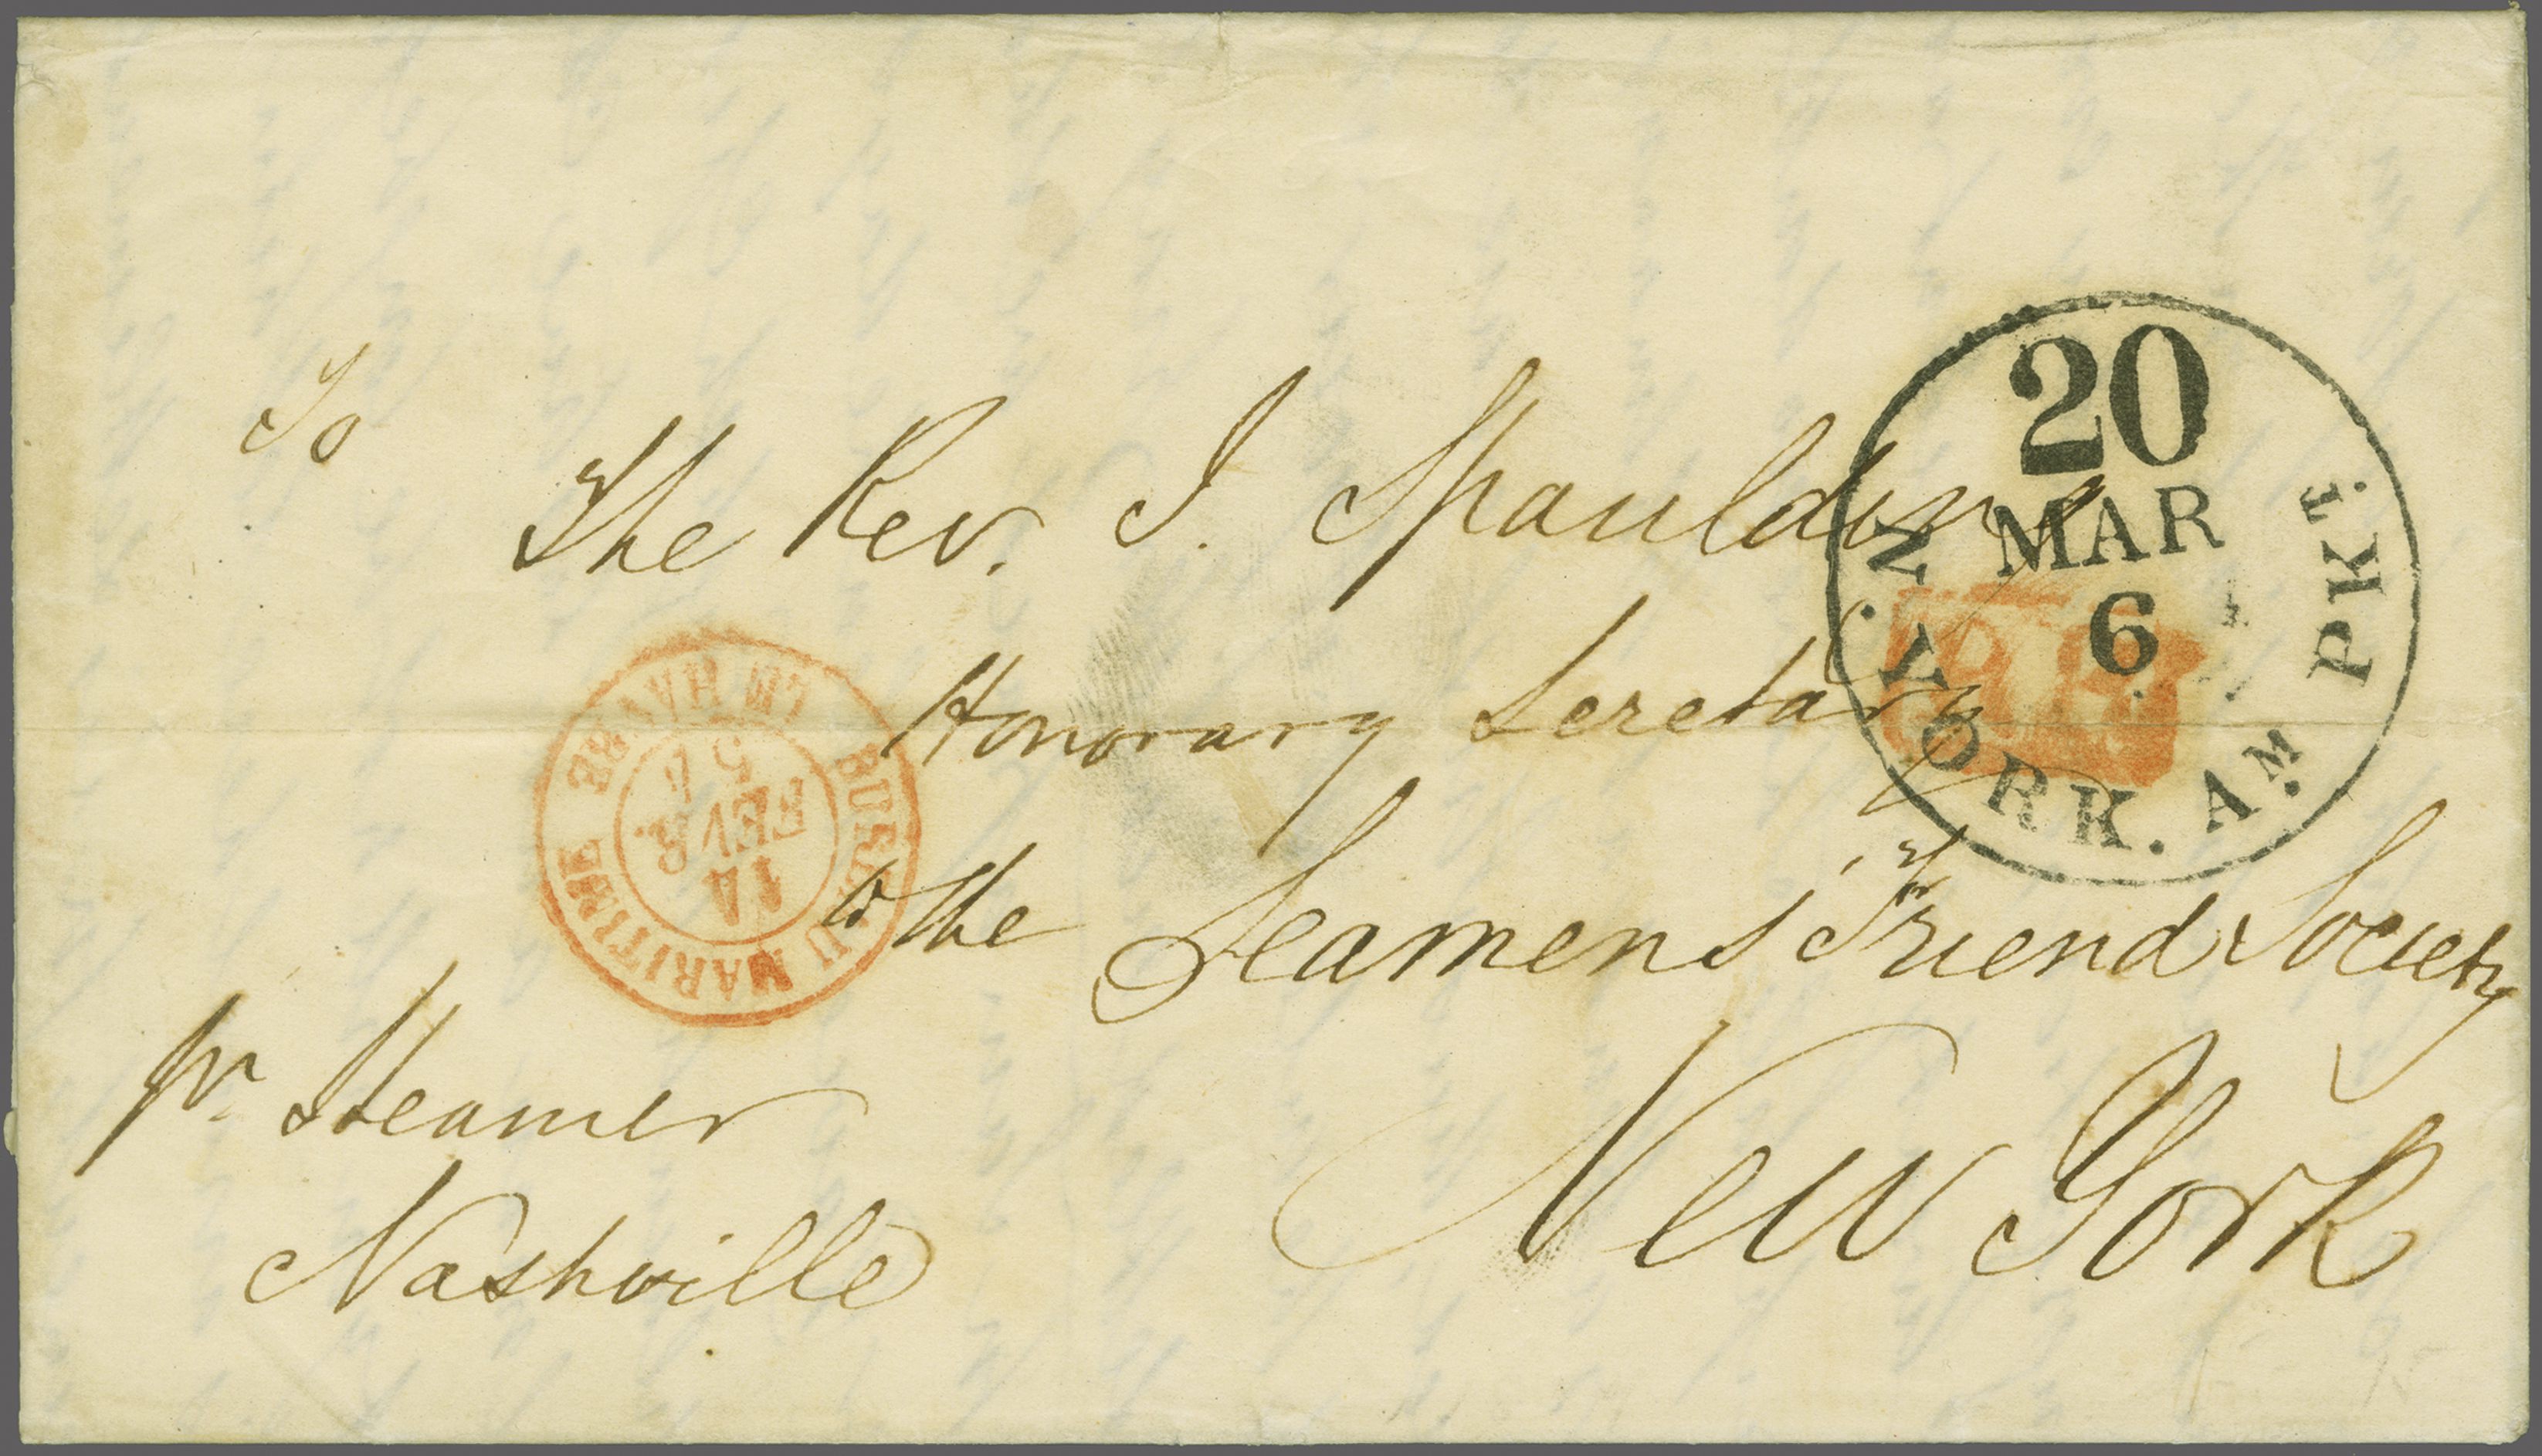 To
The Rev. J. Spaulding
Honorary Secretary
to the Seamens' Friend Society
New York
pr. Steamer
Nashville
20
MAR
6
N. YORK. AM. PKT.
BUREAU MARITIME LE HAVRE
14
FEVR.
57